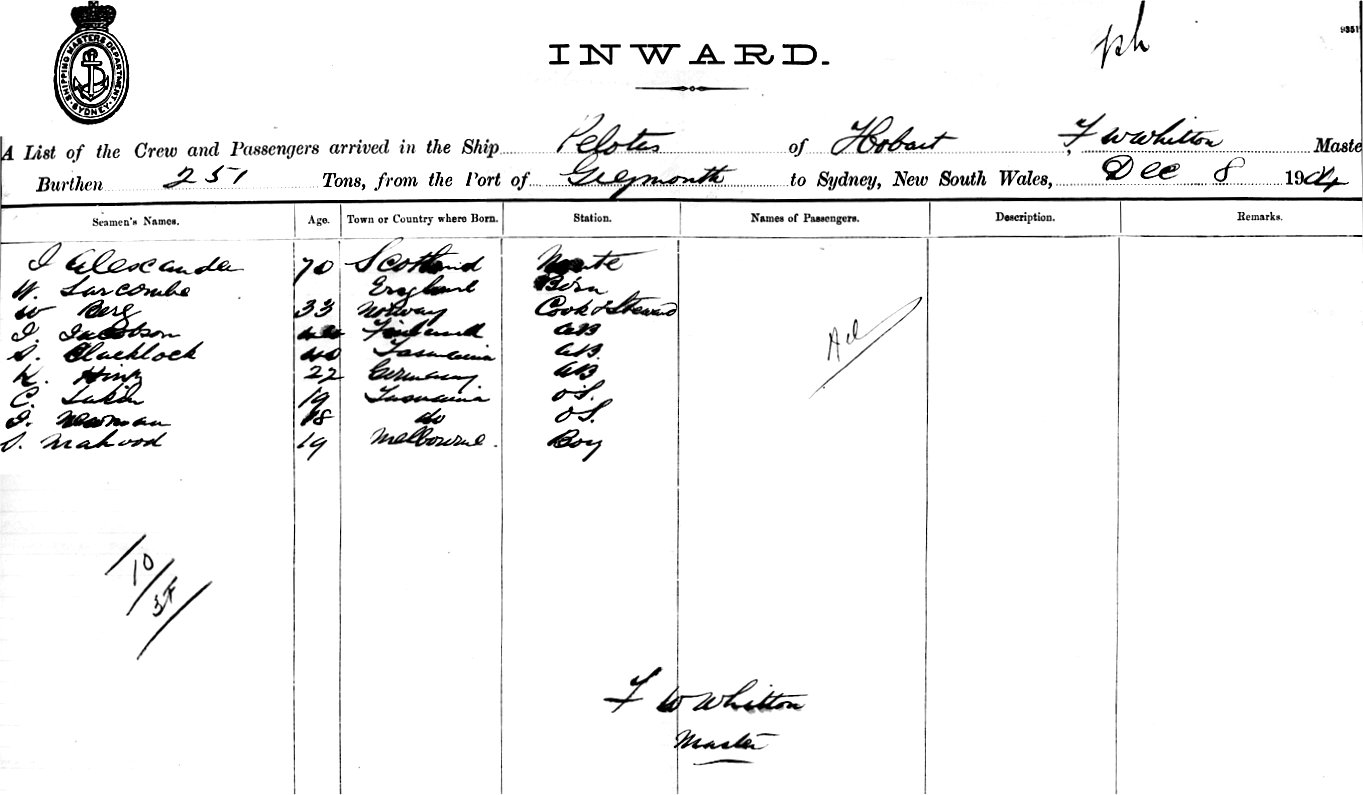 SHIPPING MASTERS DEPARTMENT
SYDNEY
INWARD.
ph
A List of the Crew and Passengers arrived in the Ship Pelotes of Hobart, F W Whitton Maste
Burthen 251 Tons, from the Port of Greymouth to Sydney, New South Wales, Dec 8 1904
Seamen's Names. Age. Town or Country where Born. Station. Names of Passengers. Description. Remarks.
J Alexander 70 Scotland Mate
W. Larcombe England Bosn
W Berg 33 Norway Cook & Steward
J. Jacobson Finland AB
S. Clucklock 40 Tasmania AB.
K. 22 Germany AB
C. 19 Tasmania O.S.
J. Newman 18 do O.S.
S. Mahood 19 Melbourne. Boy
10
F W Whitton
Master